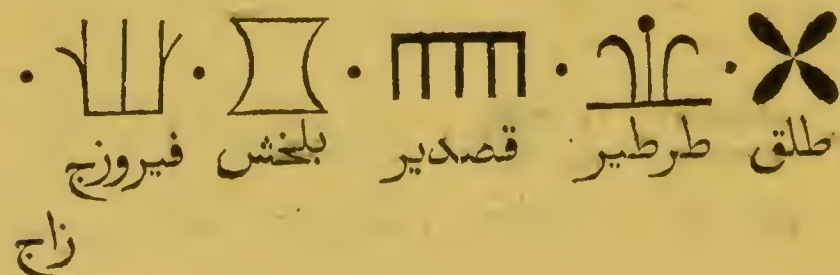 طلق طرطير قصدير بلخش فيروزج
زاج